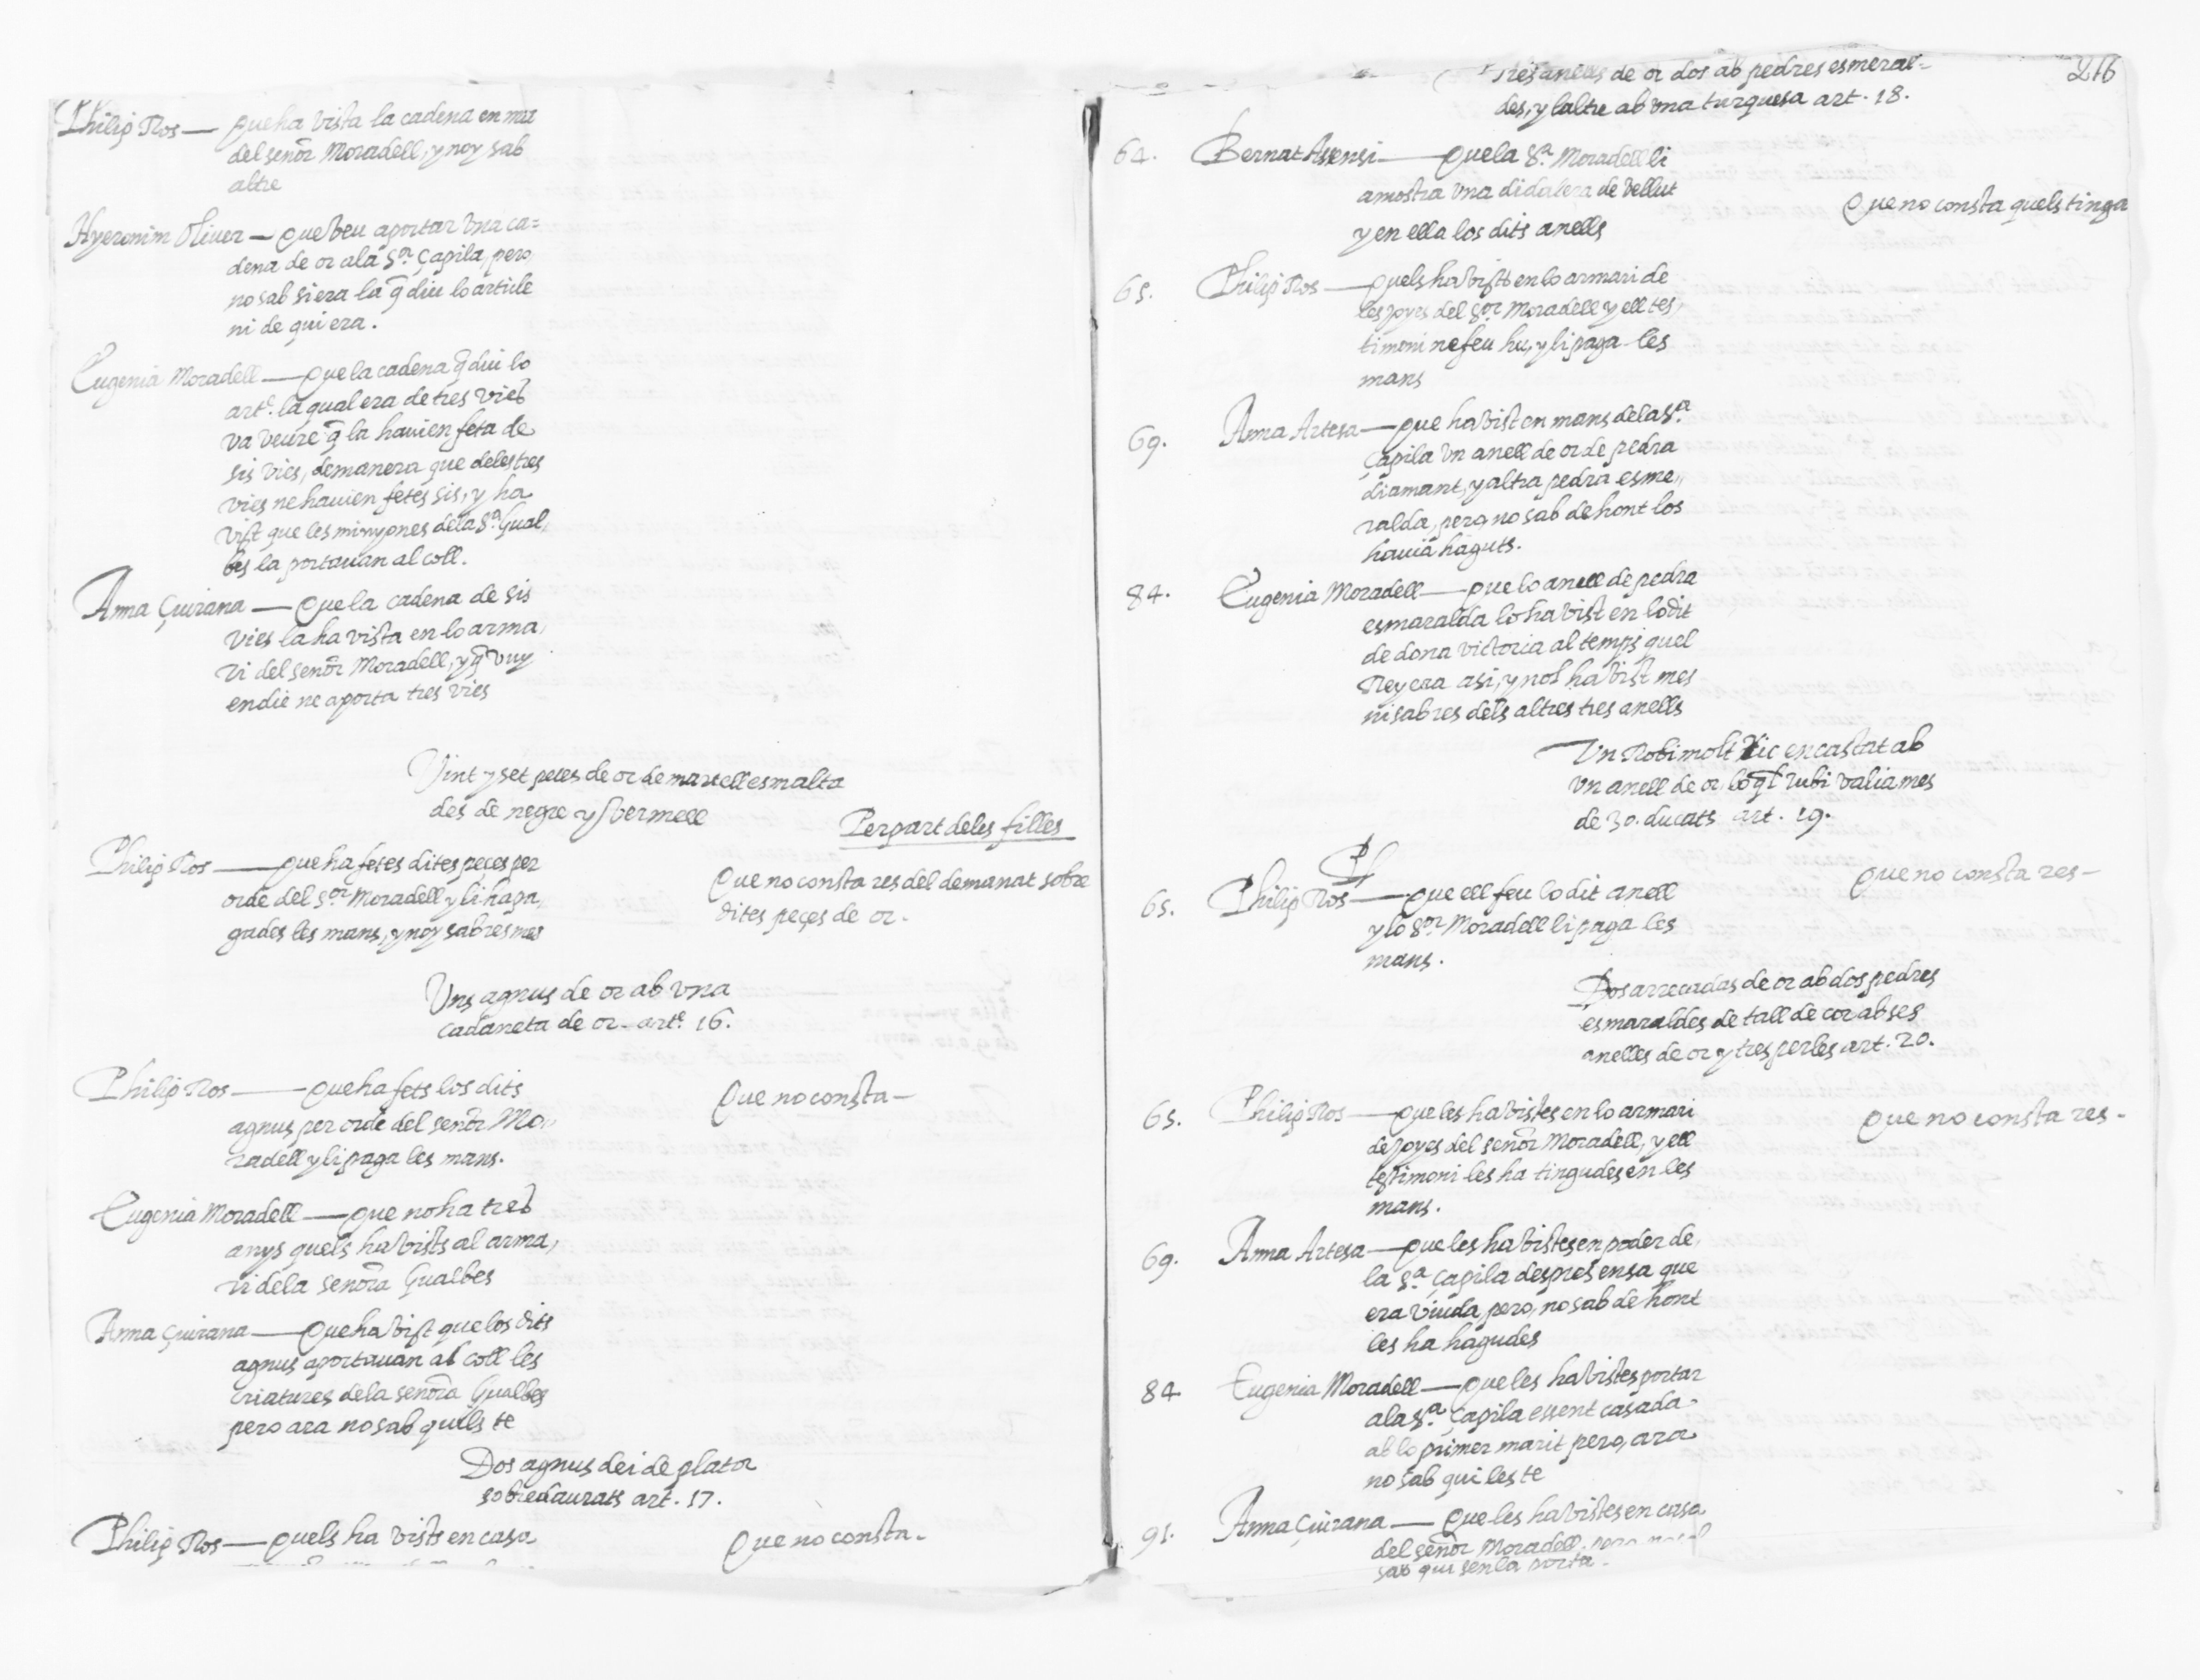 Philip Ros — que ha vista la cadena en ma
del señor Moradell, y noy sab
altre
Hyeronim Oliver — que veu aportar una ca=
dena de or a la Sra. Çapila, pero
no sab si era la q̃ diu lo article
ni de qui era.
Eugenia Moradell — que la cadena q̃ diu lo
artᵉ. la qual era de tres vies
va veure q̃ la havien feta de
sis vies, de manera que de les tres
vies ne havien fetes sis, y ha
vist que les minyones de la Sª. Gual,
bes la portavan al coll.
Anna Çuirana — que la cadena de sis
vies la ha vista en lo arma,
ri del señor Moradell, y q̃ vuy
en die ne aporta tres vies
Vint y set peces de or de martell esmalta
des de negre y vermell
Per part de les filles
Philip Ros — que ha fetes dites peçes per
orde del Sor. Moradell y li ha pa,
gades les mans, y noy sab res mes
Que no consta res del demanat sobre
dites peçes de or.
Uns agnus de or ab una
cadaneta de or. artᵉ. 16.
Philip Ros — que ha fets los dits
agnus per orde del señor Mo,,
radell y li paga les mans.
Que no consta —
Eugenia Moradell — que no ha tres
anys quels ha vists al arma,
ri de la señora Gualbes
Anna Çuirana — que ha vist que los dits
agnus aportavan al coll les
criatures de la señora Gualbes
pero ara no sab quils te
Dos agnus dei de plata
sobredaurats art. 17.
Philip Ros — quels ha vists en casa
Que no consta.
216
Tres anells de or dos ab pedres esmeral=
des, y laltre ab una turquesa art. 18.
64. Bernat Assensi — que la Sª. Moradell li
amostra una didalera de vellut
y en ella los dits anells
Que no consta quels tinga
65. Philip Ros — quels ha vists en lo armari de
les joyes del Sor. Moradell y ell tes,
timoni ne feu hu, y li paga les
mans
69. Anna Artesa — que ha vist en mans de la Sª.
Çapila un anell de or de pedra
diamant, y altra pedra esme,,
ralda, pero no sab de hont los
havia haguts.
84. Eugenia Moradell — que lo anell de pedra
esmaralda lo ha vist en lo dit
de dona victoria al temps quel
Rey era asi, y nol ha vist mes
ni sab res dels altres tres anells
Un Robi molt Ric encastat ab
un anell de or lo ql̃ rubi valia mes
de 30. ducats art. 19.
65. Philip Ros — que ell feu lo dit anell
y lo Sor. Moradell li paga les
mans.
Que no consta res —
Dos arrecadas de or ab dos pedres
esmaraldes de tall de cor ab ses
anelles de or y tres perles art. 20.
65. Philip Ros — que les ha vistes en lo armari
de joyes del señor Moradell, y ell
testimoni les ha tingudes en les
mans.
Que no consta res -
69. Anna Artesa — que les ha vistes en poder de
la Sª. Çapila despres ensa que
era viuda, pero, no sab de hont
les ha hagudes
84 Eugenia Moradell — que les ha vistes portar
a la Sª. Çapila essent casada
ab lo primer marit pero, ara
no sab qui les te
91. Anna Çuirana — que les ha vistes en casa
del señor Moradell, pero no
sab qui sen la porta.